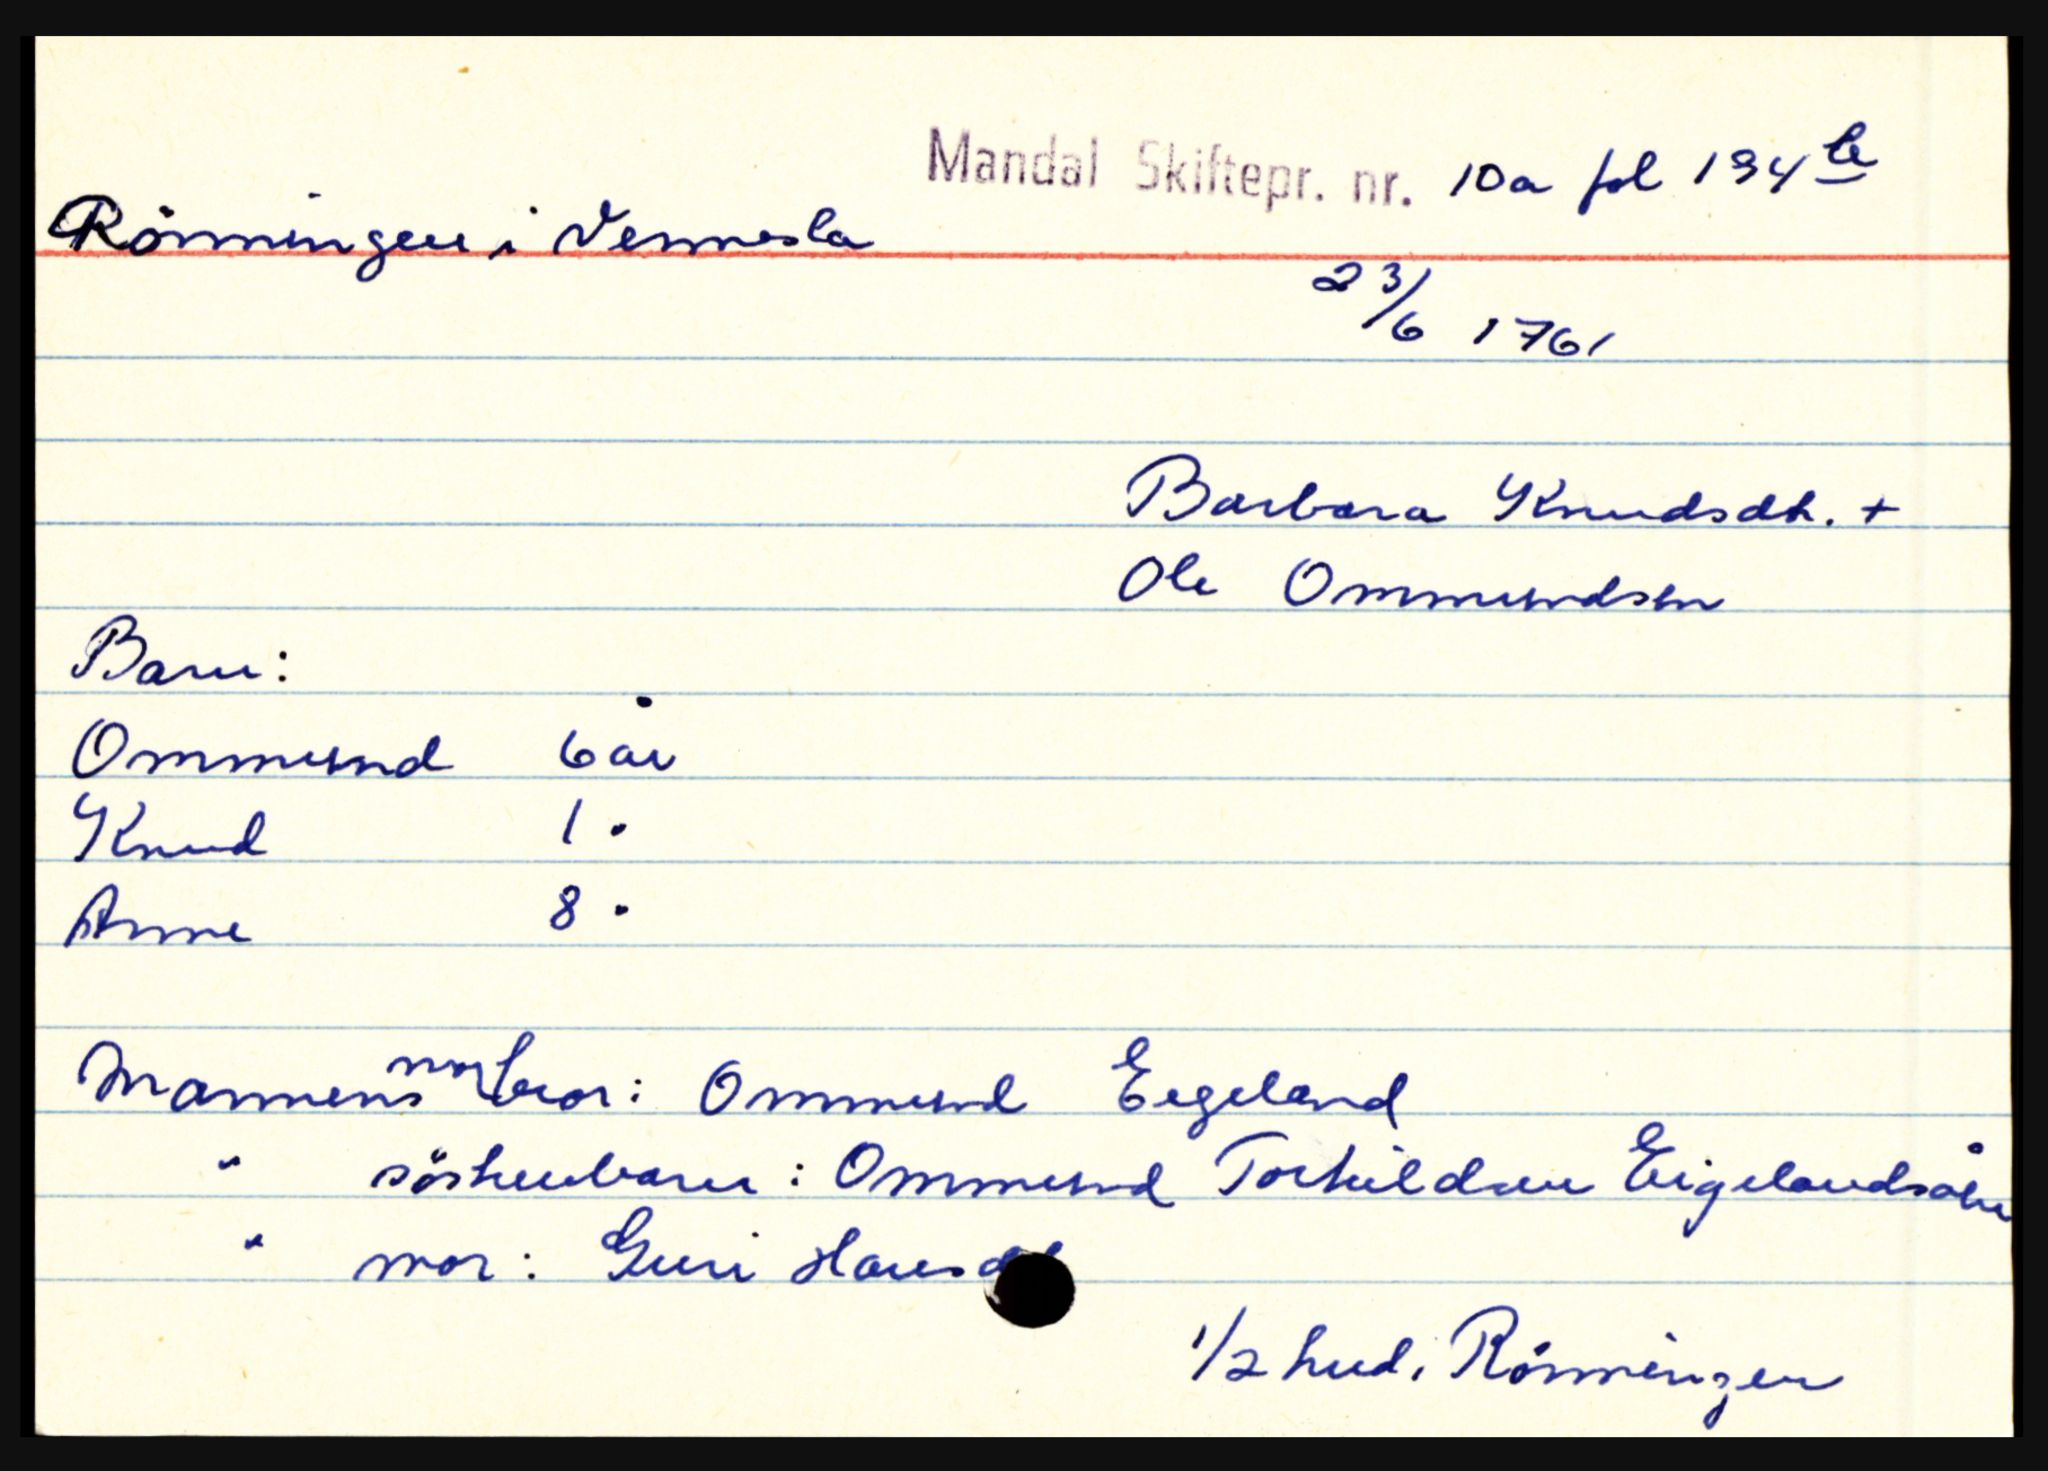 Mandal Skiftepr. nr. 10a fol 194 b
Rönningen i Vennesla
23/6 1761
Barbara Knudsdt. +
Ole Ommundsen
Barn:
Ommund 6 år
Knud 1 "
Anne 8 "
Mannens morbror: Ommund Eegeland
" söskenbarn: Ommund Torkildsen Eigelandsåen
" mor: Guri Hansd
1/2 hud i Rönningen